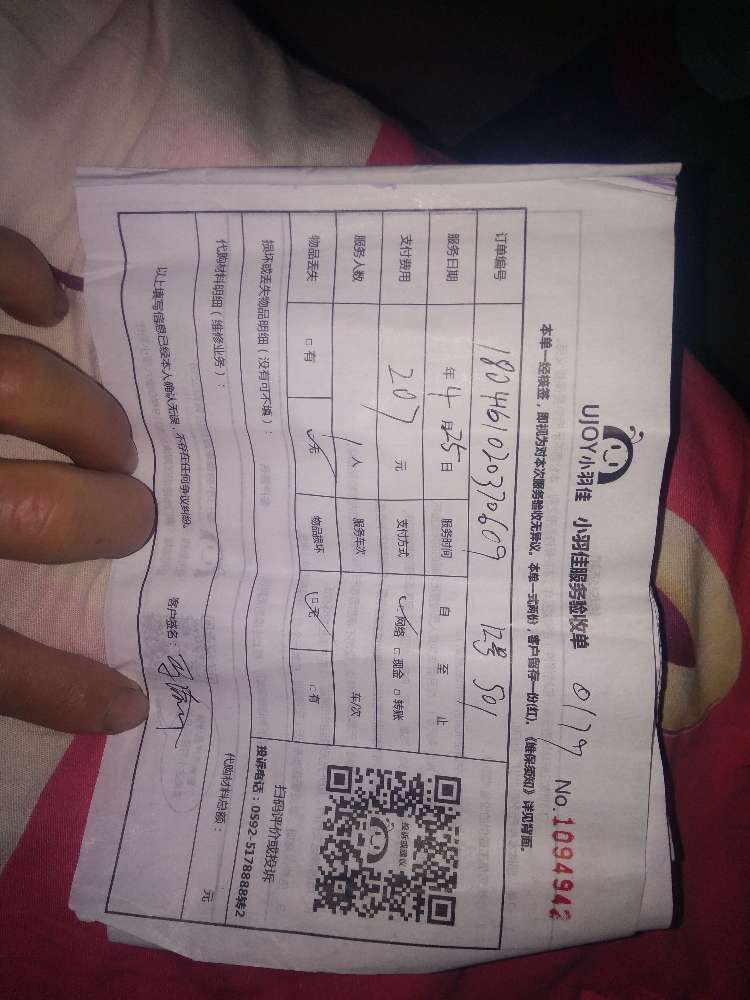 UJOY小羽佳 小羽佳服务验收单 0179 No.1094942
本单一经接签，即视为对本次服务验收无异议。本单一式两份，客户留存一份(红)。《维保须知》详见背面。
订单编号 180461020370609 12号 501
服务日期 年4月25日 服务时间 自 至 止
支付费用 207元 支付方式 ☑网络 □现金 □转账
服务人数 1人 服务车次 车/次
物品丢失 □有 ☑无 物品损坏 ☑无 □有
损坏或丢失物品明细（没有可不填）：
投诉或建议
扫码评价或投诉
投诉电话：0592-5178888转2
代购材料明细（维修业务）： 代购材料总额： 元
以上填写信息已经本人确认无误，不存在任何争议纠纷。 客户签名：